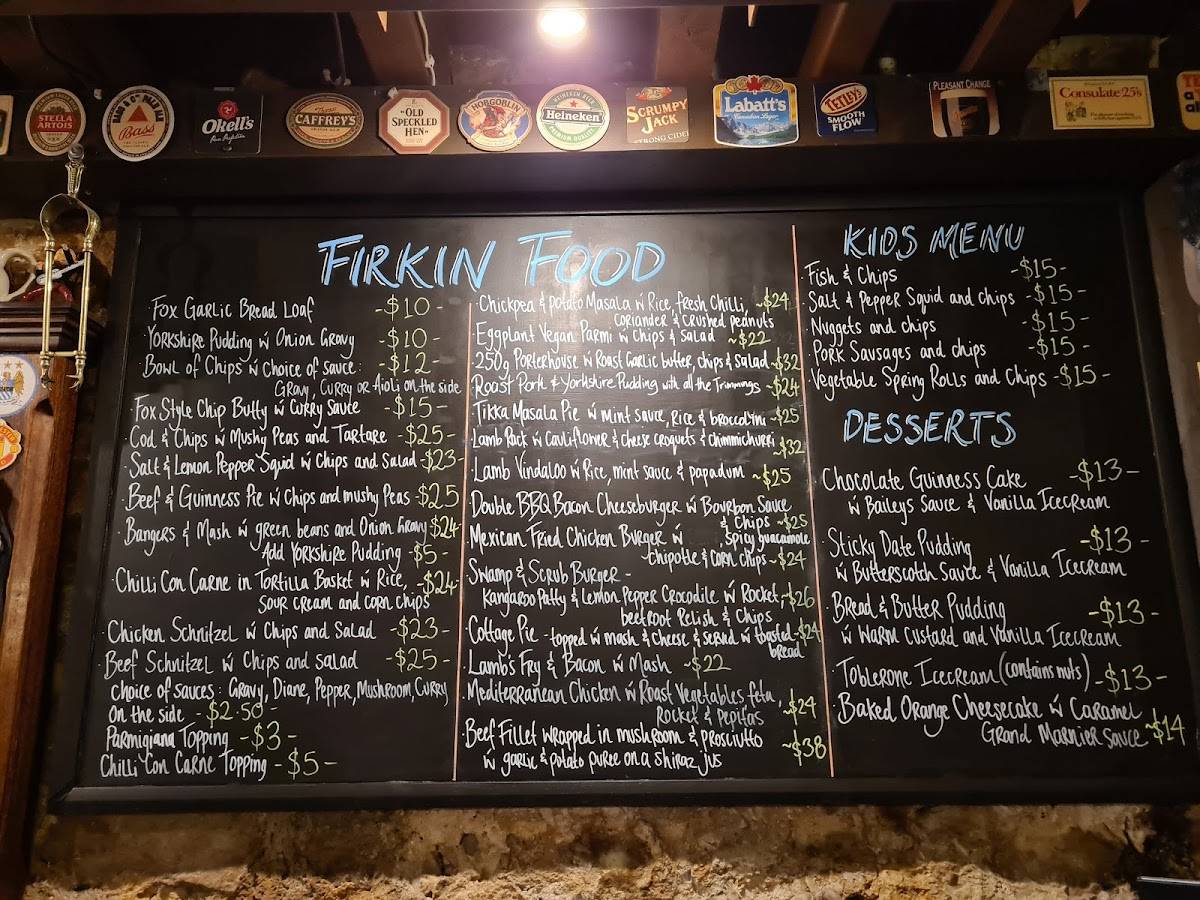 STELLA ARTOIS
Bass
Okell's
CAFFREY'S
"OLD SPECKLED HEN"
HOBGOBLIN
Heineken
SCRUMPY JACK
STRONG CIDER
Labatt's
Canadian Lager
TETLEY'S
SMOOTH FLOW
PLEASANT CHANGE
Consulate 25's
FIRKIN FOOD
Fox Garlic Bread Loaf -$10-
Yorkshire Pudding w Onion Gravy -$10-
Bowl of Chips w choice of sauce: -$12-
Gravy, Curry or Aioli on the side
Fox Style Chip Butty w Curry Sauce -$15-
Cod & Chips w Mushy Peas and Tartare -$25-
Salt & Lemon Pepper Squid w Chips and Salad -$23-
Beef & Guinness Pie w Chips and mushy Peas -$25
Bangers & Mash w green beans and Onion Gravy $24-
Add Yorkshire Pudding -$5-
Chilli Con Carne in Tortilla Basket w Rice, -$24-
Sour cream and corn chips
Chicken Schnitzel w Chips and Salad -$23-
Beef Schnitzel w Chips and salad -$25-
choice of sauces: Gravy, Diane, Pepper, Mushroom, Curry
On the side -$2.50-
Parmigiana Topping -$3-
Chilli Con Carne Topping -$5-
Chickpea & potato Masala w Rice, fresh chilli, ~$24
Coriander & Crushed peanuts
Eggplant Vegan Parmi w Chips & Salad ~$22
250g Porterhouse w Roast Garlic butter, chips & salad ~$32
Roast Pork & Yorkshire Pudding with all the Trimmings ~$24
Tikka Masala Pie w Mint sauce, Rice & broccolini ~$25
Lamb Rack w Cauliflower & cheese croquets & chimmichurri
~$32
Lamb Vindaloo w Rice, mint sauce & papadum ~$25
Double BBQ Bacon Cheeseburger w Bourbon Sauce
& Chips ~$25
Mexican Fried Chicken Burger w Spicy guacamole
Chipotle & Corn Chips ~$24
Swamp & Scrub Burger -
Kangaroo Patty & Lemon Pepper Crocodile w Rocket, ~$26
beetroot Relish & Chips
Cottage Pie - topped w mash & Cheese & served w toasted ~$24
bread
Lamb's Fry & Bacon w Mash ~$22
Mediterranean Chicken w Roast Vegetables, feta, ~$24
Rocket & Pepitas
Beef Fillet wrapped in mushroom & Prosciutto ~$38
w garlic & potato puree on a shiraz jus
KIDS MENU
Fish & Chips -$15-
Salt & Pepper Squid and chips -$15-
Nuggets and chips -$15-
Pork Sausages and chips -$15-
Vegetable Spring Rolls and Chips -$15-
DESSERTS
Chocolate Guinness Cake -$13-
w Baileys Sauce & Vanilla Icecream
Sticky Date Pudding -$13-
w Butterscotch Sauce & Vanilla Icecream
Bread & Butter Pudding -$13-
w Warm Custard and Vanilla Icecream
Toblerone Icecream (contains nuts) -$13-
Baked Orange Cheesecake w Caramel
Grand Marnier Sauce $14